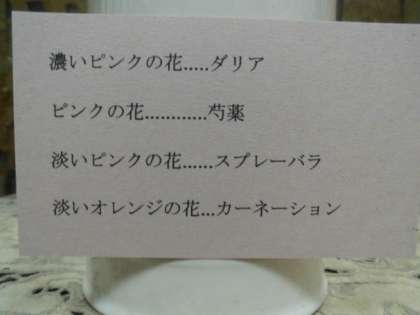 濃いピンクの花.....ダリア
ピンクの花............芍薬
淡いピンクの花......スプレーバラ
淡いオレンジの花...カーネーション